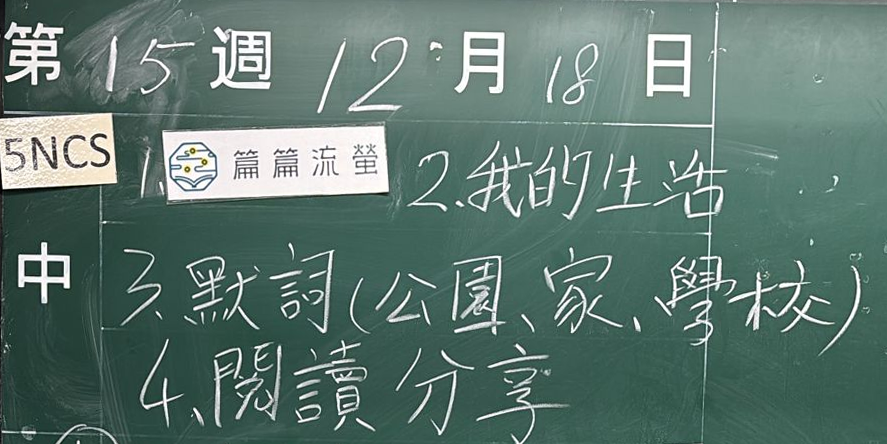 第15週 12月18日
5NCS
1. 篇篇流螢 2.我的生活
中 3、默詞(公園、家、學校)
4、閱讀分享